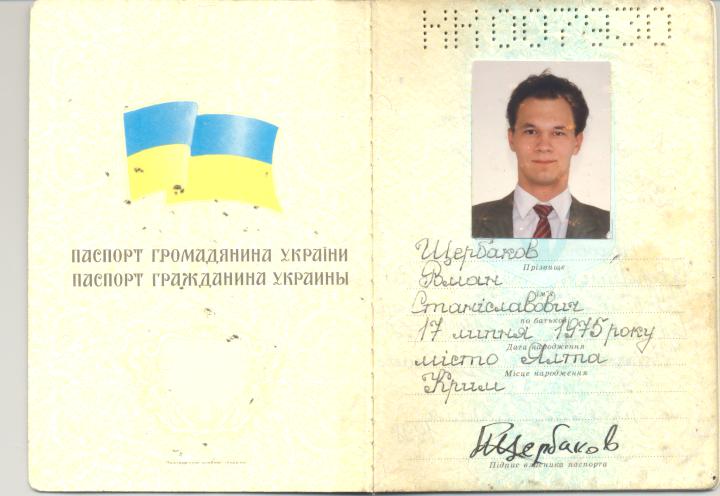 ПАСПОРТ ГРОМАДЯНИНА УКРАЇНИ
ПАСПОРТ ГРАЖДАНИНА УКРАИНЫ
НМ007930
Щербаков
Прізвище
Роман
ім'я
Станіславович
по батькові
17 липня 1975 року
Дата народження
місто Ялта
Місце народження
Крим
Щербаков
Підпис власника паспорта